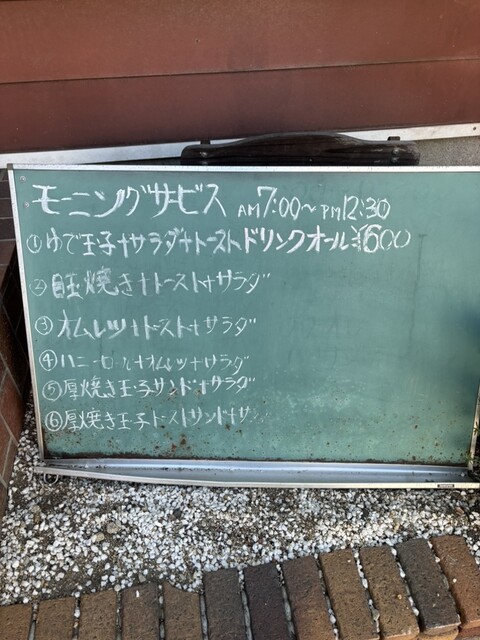 モーニングサービス AM7:00〜PM12:30
①ゆで玉子+サラダ+トーストドリンクオール¥600
②目玉焼き+トースト+サラダ
③オムレツ+トースト+サラダ
④ハニーロール+オムレツ+サラダ
⑤厚焼き玉子サンド+サラダ
⑥厚焼き玉子トーストサンド+サ